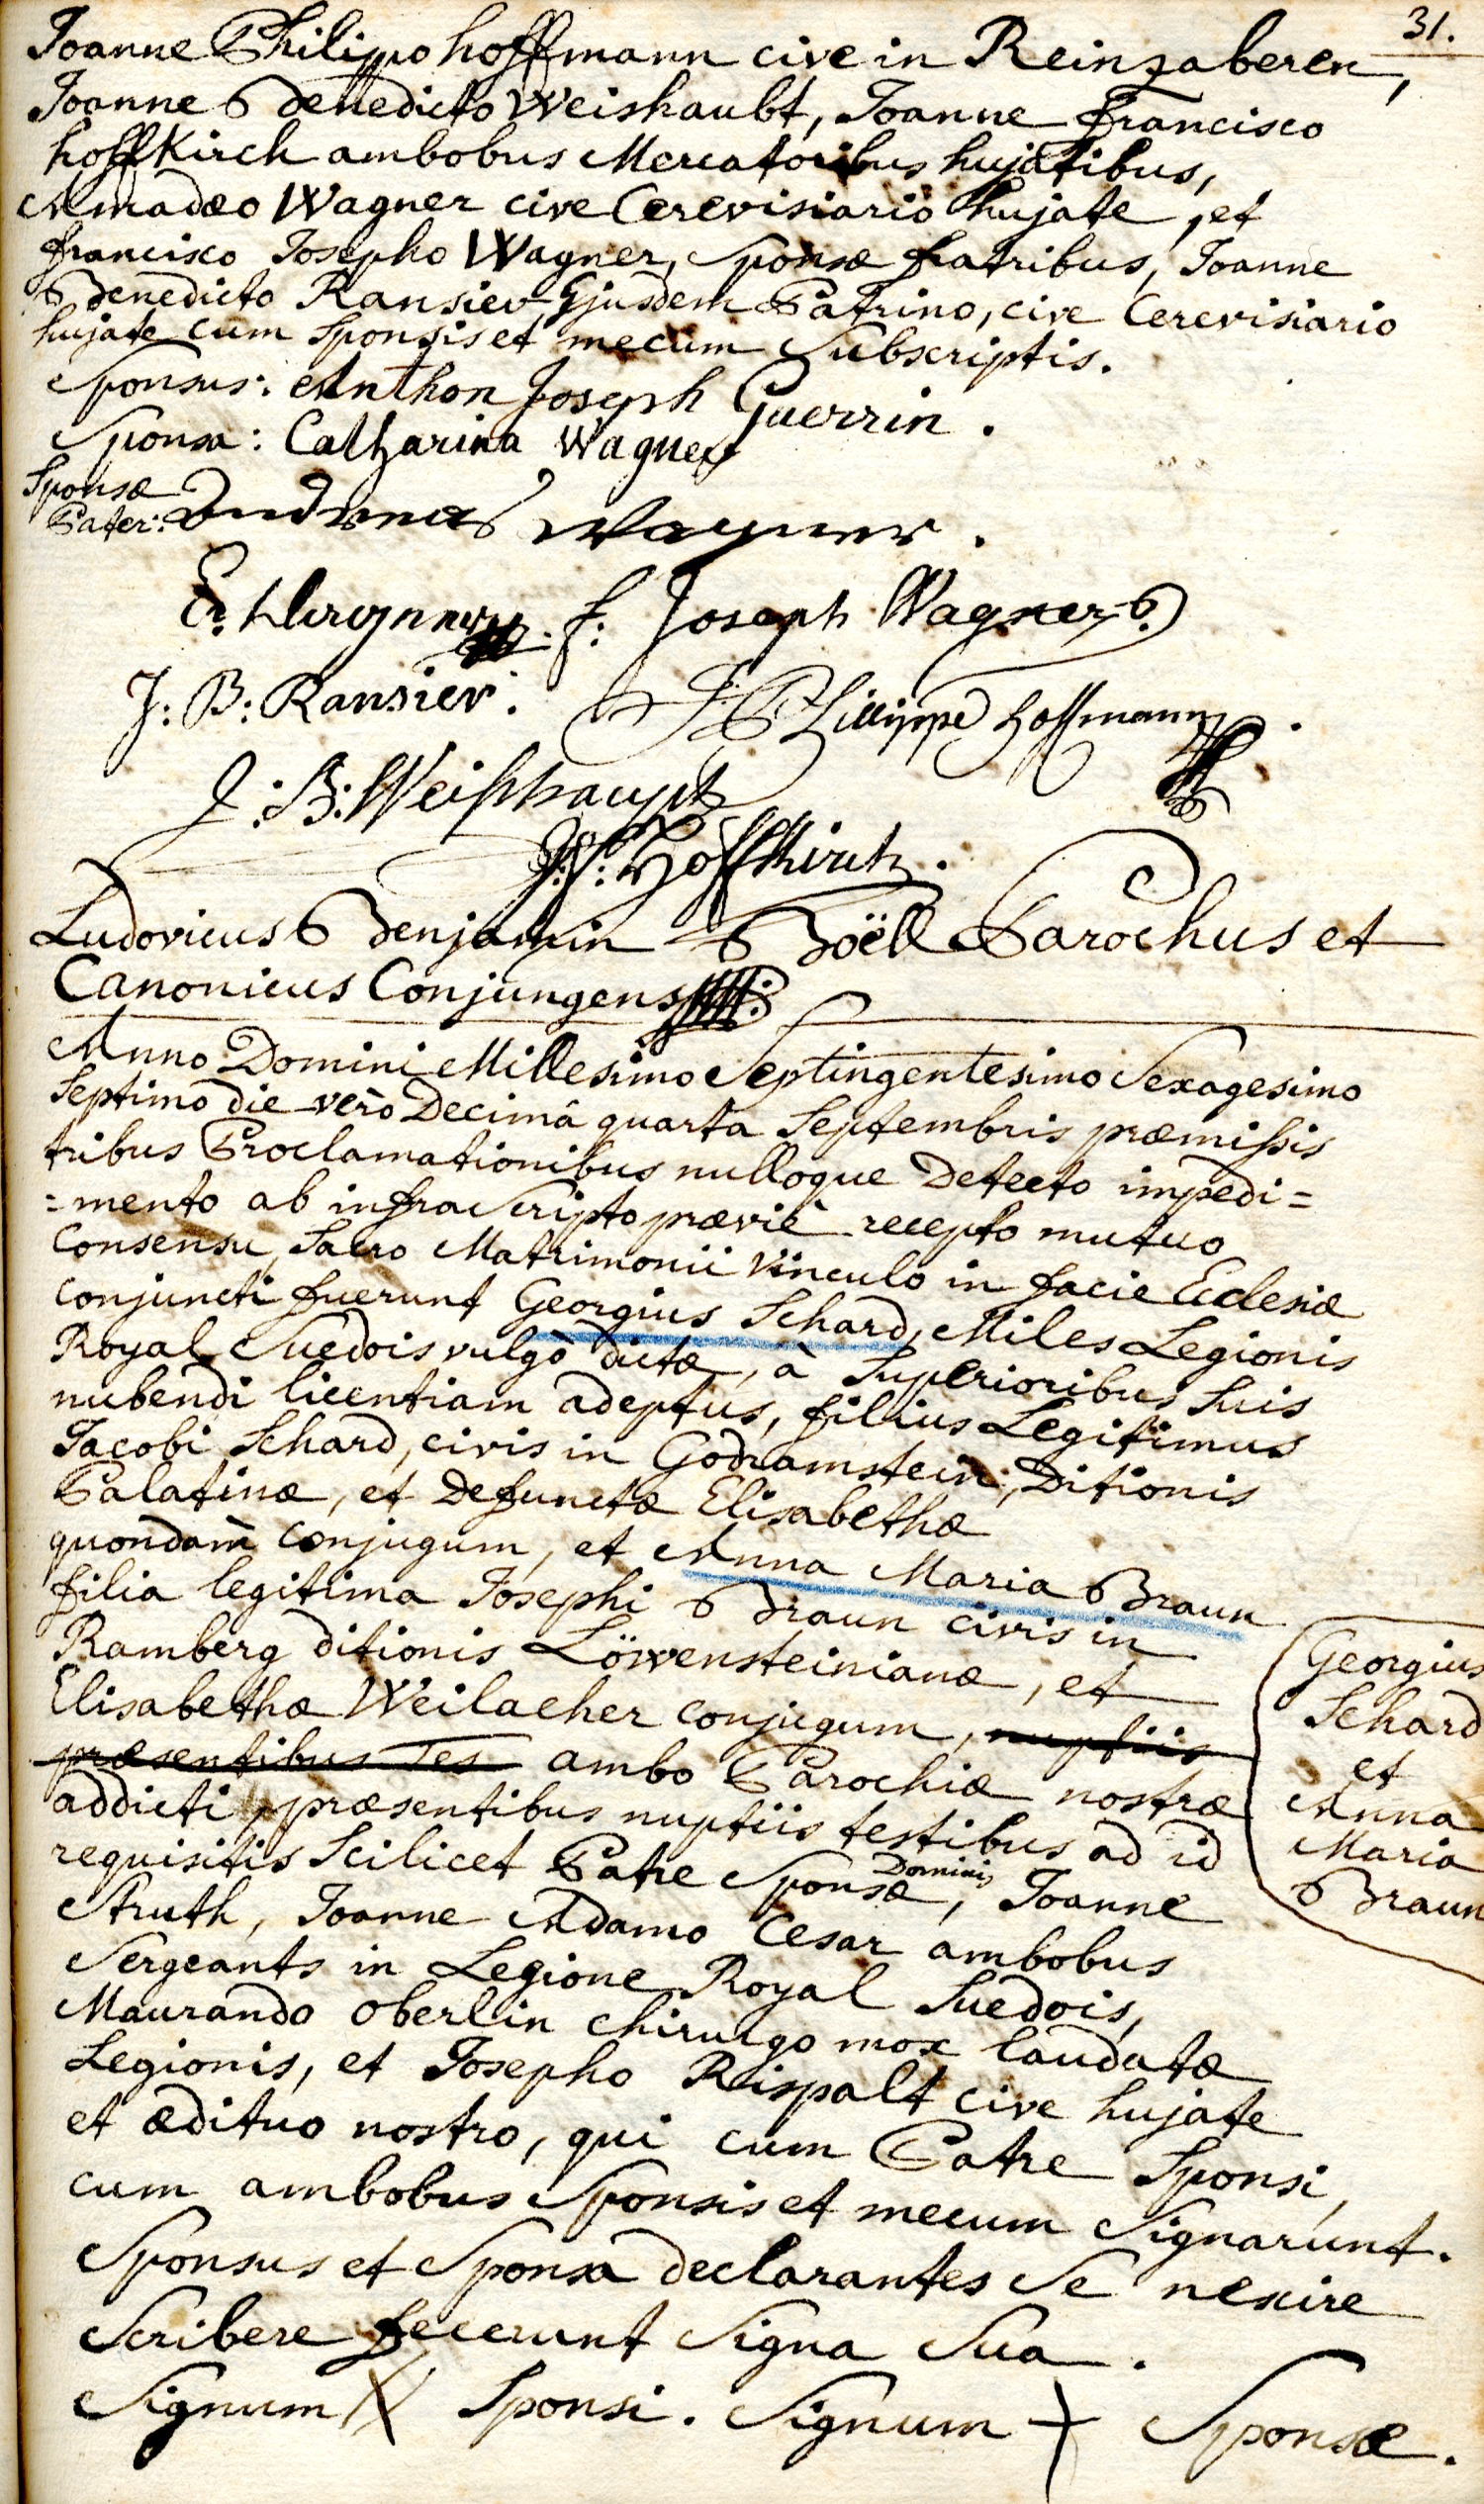 31.
Joanne Philippo hoffmann cive in Reinzaberen,
Joanne Benedicto Weishaubt, Joanne francisco
hoffKirch ambobus Mercatoribus hujatibus,
Amadæo Wagner cive Cerevisiario hujate, et
francisco Josepho Wagner, Sponsæ fratribus, Joanne
Benedicto Ransier Ejusdem Patrino, cive Cerevisiario
hujate cum Sponsis et mecum Subscriptis.
Sponsus: Anthon Joseph Guerrin.
Sponsa: Catharina Wagner
Sponsæ
Pater: Andreas Wagner.
f: Joseph Wagner
J: B: Ransier. J: Philippe Hoffmann.
J: B: Weißhaupt
J: f: Hoffkirch.
Ludovicus Benjamin Boëll Parochus et
Canonicus Conjungens
Anno Domini Millesimo Septingentesimo Sexagesimo
Septimo die vero Decimâ quarta Septembris præmissis
tribus Proclamationibus nulloque Detecto impedi=
=mento ab infra Scripto præviè recepto mutuo
Consensu, Sacro Matrimonii Vinculo in facie Eclesiæ
Conjuncti fuerunt Georgius Schard, Miles Legionis
Royal Suedois vulgò dictæ, à Superioribus Suis
nubendi licentiam adeptus, filius Legitimus
Jacobi Schard, civis in Godramstein, Ditionis
Palatinæ, et Defunctæ Elisabethæ
quondam conjugum, et Anna Maria Braun
filia legitima Josephi Braun civis in
Ramberg ditionis Löwensteinianæ, et
Elisabethæ Weilacher conjugum, nuptiis
præsentibus Tes ambo Parochiæ nostræ
addicti, præsentibus nuptiis testibus ad id
requisitis Scilicet Patre Sponsæ, Dominis Joanne
Struth, Joanne Adamo Cesar ambobus
Sergeants in Legione Royal Suedois,
Maurando Oberlin Chirurgo mox laudatæ
Legionis, et Josepho Rispalt cive hujate
et ædituo nostro, qui cum Patre Sponsi,
cum ambobus Sponsis et mecum Signarunt.
Sponsus et Sponsa declarantes Se nescire
Scribere fecerunt Signa Sua.
Signum X Sponsi. Signum + Sponsæ.
Georgius
Schard
et
Anna
Maria
Braun